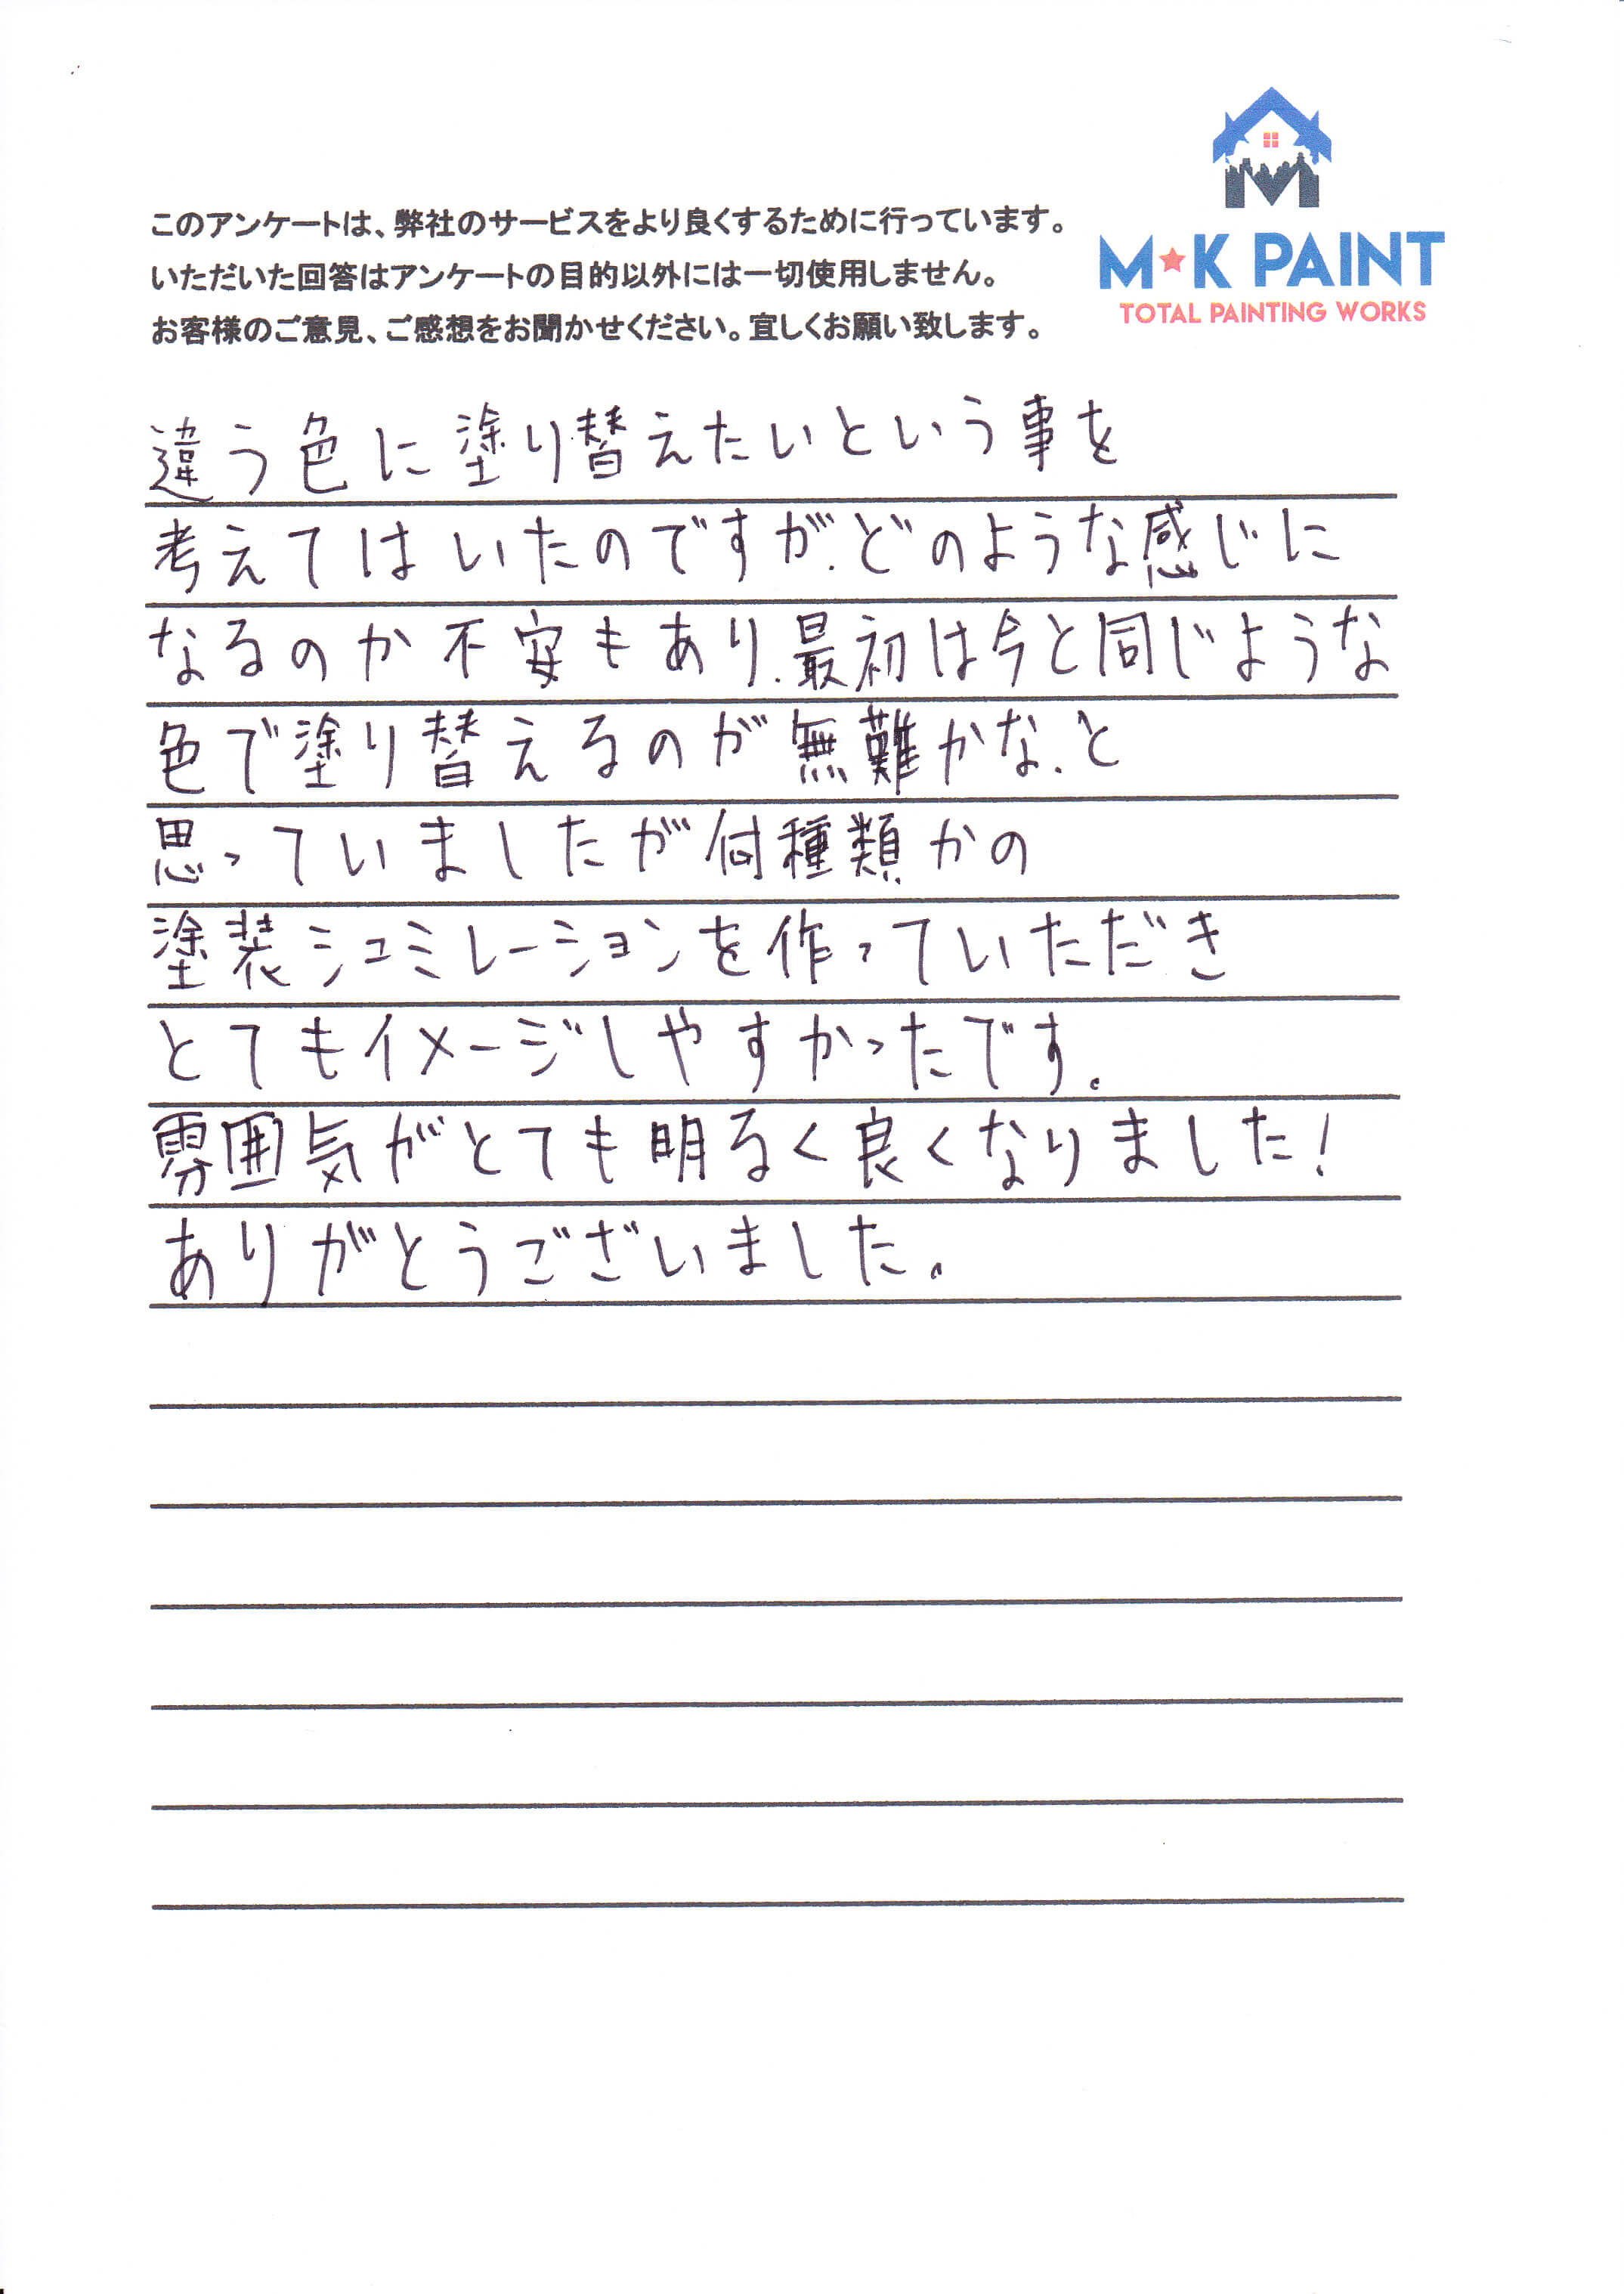 このアンケートは、弊社のサービスをより良くするために行っています。
いただいた回答はアンケートの目的以外には一切使用しません。
お客様のご意見、ご感想をお聞かせください。宜しくお願い致します。
M★K PAINT
TOTAL PAINTING WORKS
違う色に塗り替えたいという事を
考えてはいたのですが、どのような感じに
なるのか不安もあり、最初は今と同じような
色で塗り替えるのが無難かな、と
思っていましたが何種類かの
塗装シュミレーションを作っていただき
とてもイメージしやすかったです。
雰囲気がとても明るく良くなりました!
ありがとうございました。